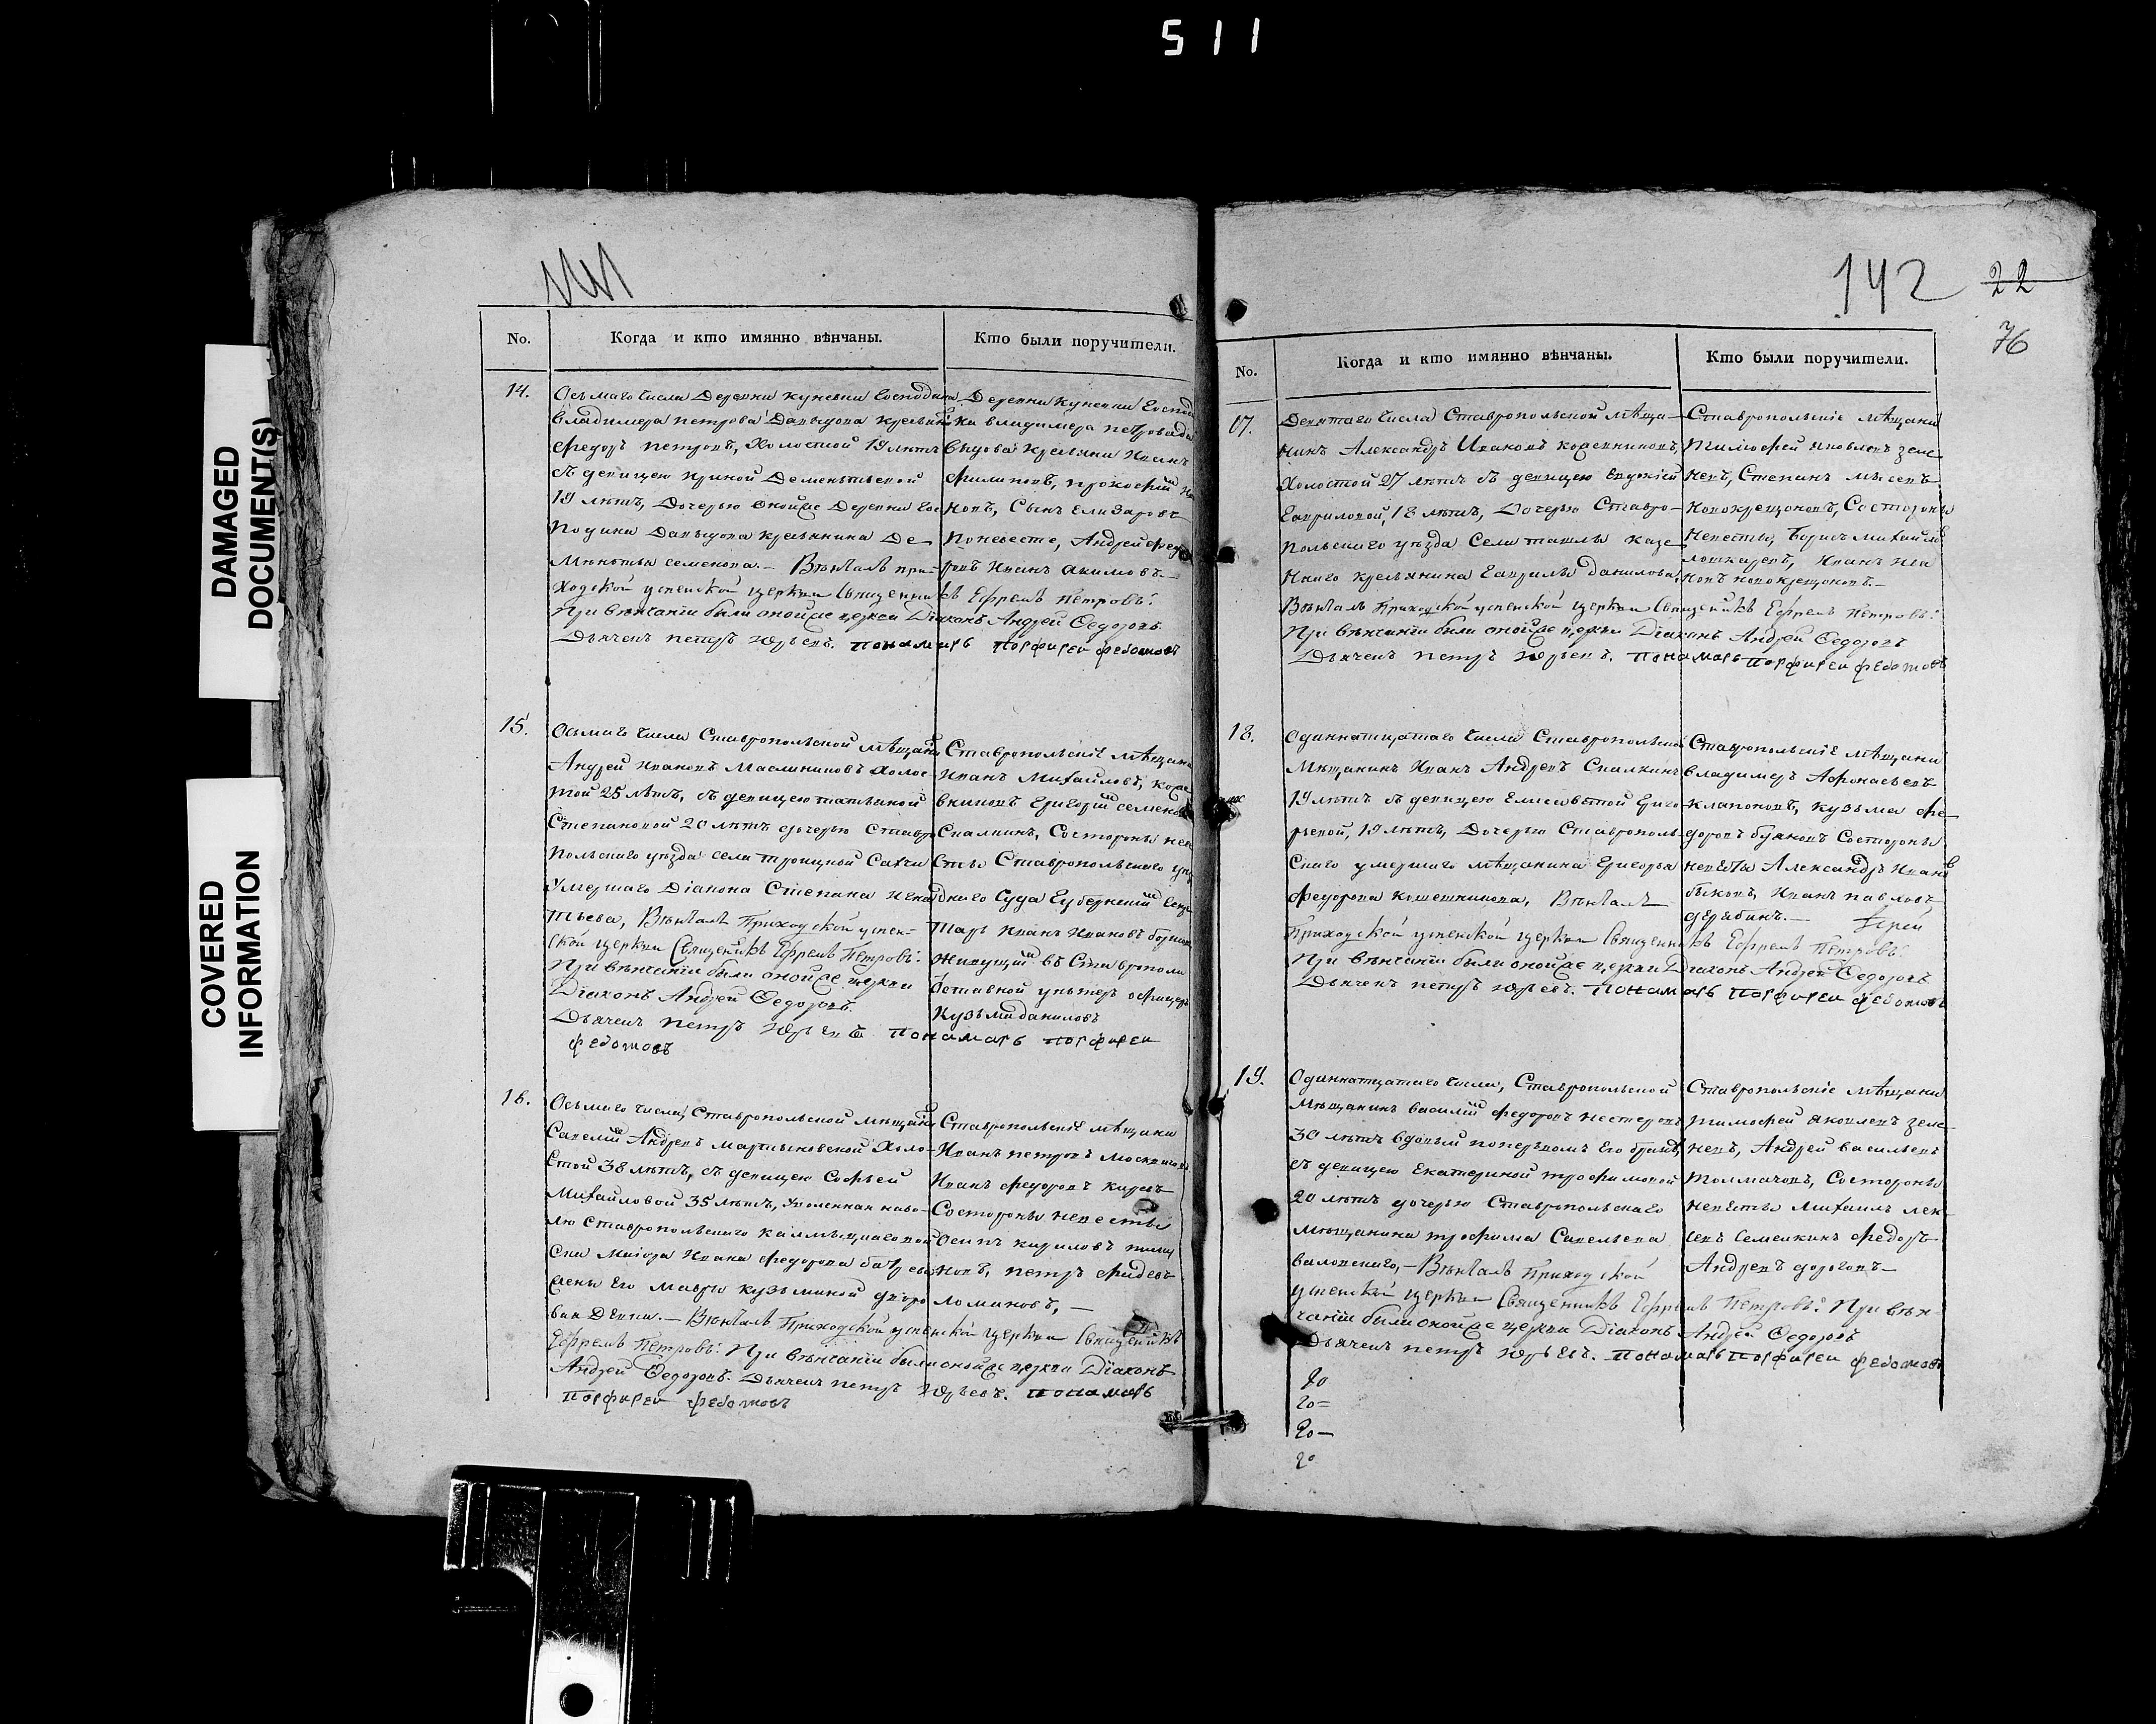 511
DAMAGED
DOCUMENT(S)
COVERED
INFORMATION
No.
Когда и кто имянно вѣнчаны.
Кто были поручители.
14.
Осьмаго числа Деревни кунеевки Господина
Владимера петрова Давыдова крестьянинъ
Федоръ петровъ, холостой 19 лѣтъ
съ девицею ириной Дементьевой
19 лѣтъ, Дочерью оной же Деревни Гос
подина Давыдова крестьянина Де-
ментья семенова. — Вѣнчалъ при-
ходской успенской церкви Священникъ Ефремъ Петровъ.
При вѣнчаніи были оной же церкви Діаконъ Андрей Ѳедоровъ
Дьячекъ петръ юрьевъ. пономарь порфирей федотовъ
Деревни кунеевки Господи
на владимера петрова да
выдова крестьяни Иванъ
филиповъ, прокофій
новъ, Сынъ елизаровъ
По невесте, Андрей фед
ровъ Иванъ акимовъ. —
15.
Осьмаго числа Ставропольской мѣщанинъ
Андрей Ивановъ Маслениковъ холос-
той 25 лѣтъ, съ девицею татьяной
Степановой 20 лѣтъ дочерью Ставро
польскаго уѣзда села троицкой
умершаго Діакона Степана Игна
тьева, Вѣнчалъ Приходской успен-
ской церкви Священникъ Ефремъ Петровъ.
При вѣнчаніи были оной же церкви
Діаконъ Андрей Ѳедоровъ.
Дьячекъ петръ юрьевъ пономарь порфирей
федотовъ
Ставропольскіе мѣщани
Иванъ Михайловъ, коже
вниковъ Григорій семенов
Скалкинъ, Со стороны неве
сты Ставропольскаго уѣз
днаго Суда Губернскій секре
тарь Иванъ Ивановъ
живущій въ Ставрополи
отставной унтеръ офицеръ
Кузьма даниловъ
16.
Осьмаго числа, Ставропольской мѣщанинъ
Савелій Андреевъ мартыновской Холо-
стой 38 лѣтъ, съ девицею Софьей
Михайловой 35 лѣтъ, уволенная наво-
лю Ставропольскаго калмыцкаго вой
ска маіора Ивана федорова
жены его мавры кузьминой дворо
вая Девки. — Вѣнчалъ Приходской успенской церкви Священникъ
Ефремъ Петровъ. При вѣнчаніи были оной же церкви Діаконъ
Андрей Ѳедоровъ. Дьячекъ петръ юрьевъ. пономарь
порфирей федотовъ
Ставропольскіе мѣщани
Иванъ петровъ
Иванъ федоровъ
Со стороны невесты
Осипъ кириловъ
новъ, петръ
ломановъ, —
142
22
76
No.
Когда и кто имянно вѣнчаны.
Кто были поручители.
17.
Девятаго числа Ставропольской мѣща-
нинъ Александръ Ивановъ кожевниковъ,
Холостой 27 лѣтъ съ девицею евдокіей
Гавриловой, 18 лѣтъ, Дочерью Ставро-
польскаго уѣзда Села ташлы казе
ннаго крестьянина Гаврилы данилова,
Вѣнчалъ Приходской успенской церкви Священникъ Ефремъ Петровъ.
При вѣнчаніи были оной же церкви Діаконъ Андрей Ѳедоровъ
Дьячекъ петръ юрьевъ. пономарь порфирей федотовъ
Ставропольскіе мѣщани
Тимофей яковлевъ
невъ, Степанъ
новокрещоновъ, Со стороны
Невесты, Борисъ михайлов
Иванъ Ива
новъ новокрещоновъ. —
18.
Одиннатцатаго числа Ставропольской
Мѣщанинъ Иванъ Андреевъ Скалкинъ
19 лѣтъ съ девицею Елисаветой Григо
рьевой, 19 лѣтъ, Дочерью Ставрополь-
скаго умершаго мѣщанина Григорья
федорова Вѣнчалъ
Приходской успенской церкви Священникъ Ефремъ Петровъ.
При вѣнчаніи были оной же церкви Діаконъ Андрей Ѳедоровъ
Дьячекъ петръ юрьевъ. пономарь порфирей федотовъ
Ставропольскіе мѣщани
Владимеръ Афонасьевъ
клапоновъ, кузьма фе-
доровъ буяновъ Со стороны
невесты Александръ Иванов
быковъ, Иванъ павловъ
дерябинъ. — Іерей
19.
Одиннатцатаго числа, Ставропольской
Мѣщанинъ василій федоровъ нестеровъ
30 лѣтъ вдовый поперьвомъ его бракѣ,
съ девицею екатериной трофимовой
20 лѣтъ дочерью Ставропольскаго
мѣщанина трофима Савельева
— Вѣнчалъ Приходской
успенской церкви Священникъ Ефремъ Петровъ. При вѣн-
чаніи были оной же церкви Діаконъ Андрей Ѳедоровъ
Дьячекъ петръ юрьевъ. пономарь порфирей федотовъ
Ставропольскіе мѣщани
тимофей яковлевъ
невъ, Андрей васильевъ
толмачовъ, Со стороны
невесты михаилъ алек
сеевъ Семейкинъ федоръ
Андреевъ дороговъ —